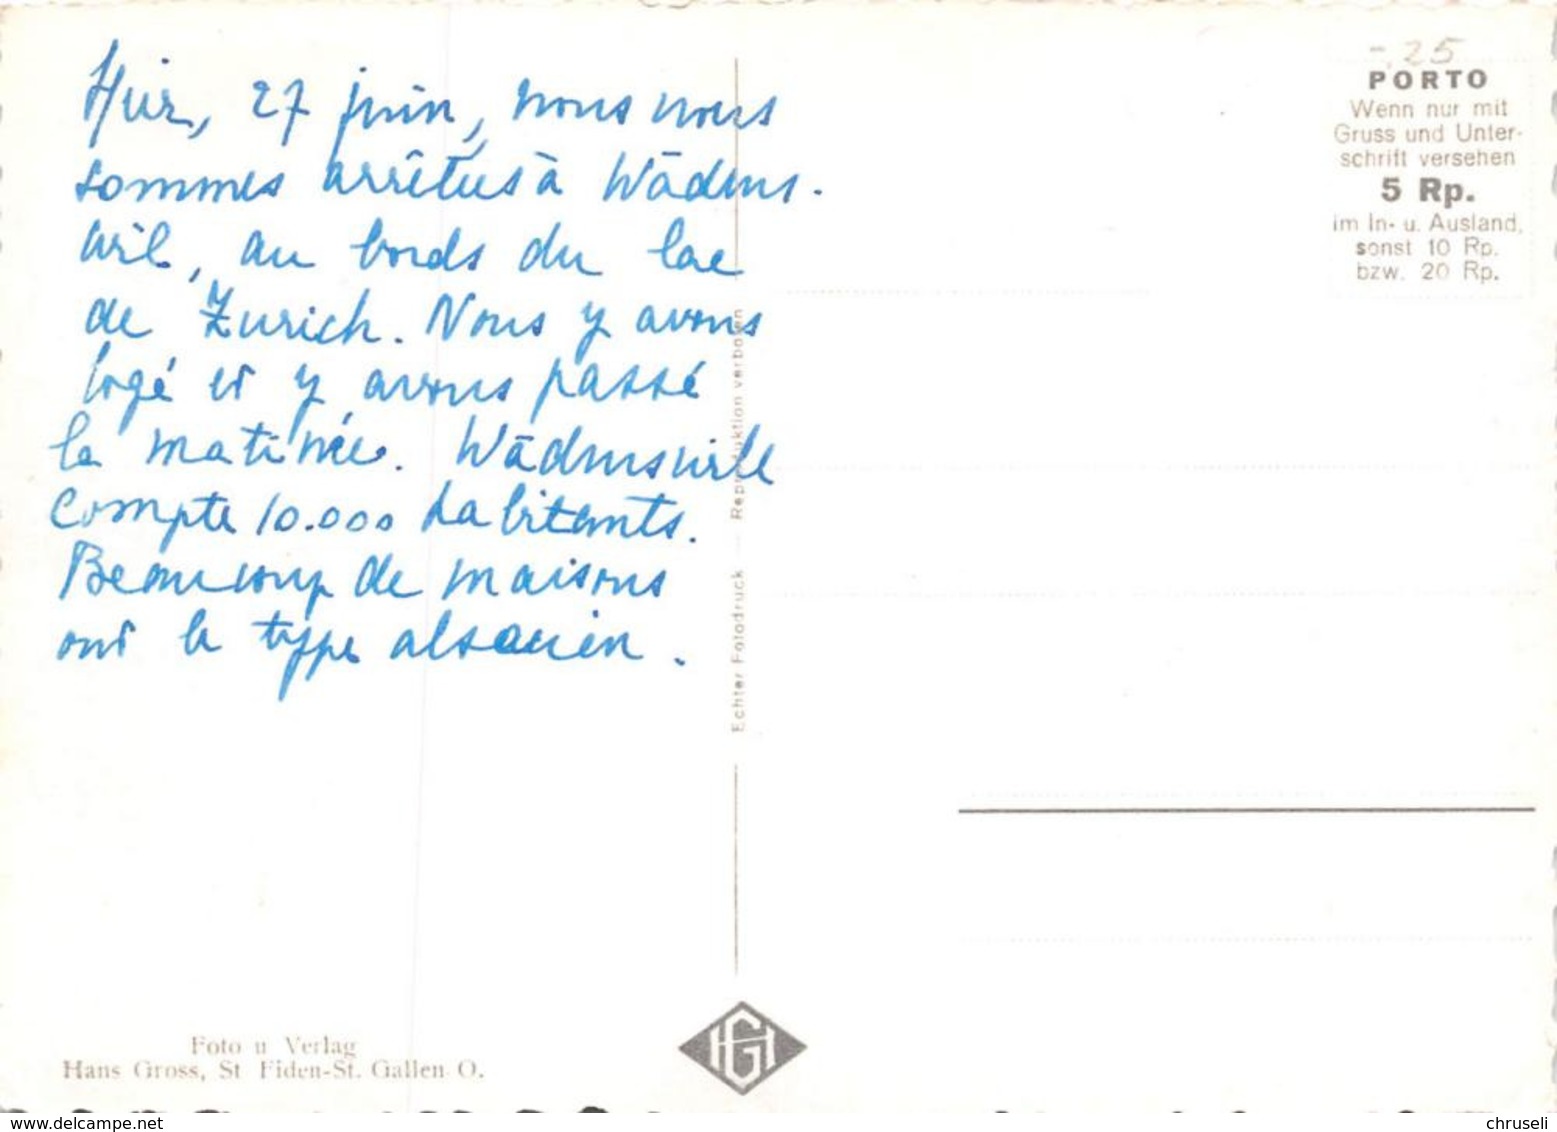 Hier, 27 juin, nous nous
sommes arrêtés à Wädens-
wil, au bords du lac
de Zurich. Nous y avons
logé et y avons passé
la matinée. Wädenswill
compte 10.000 habitants.
Beaucoup de maisons
ont le type alsacien.
Foto u Verlag
Hans Gross, St Fiden-St. Gallen O.
Echter Fotodruck — Reproduktion verboten
HG
-.25
PORTO
Wenn nur mit
Gruss und Unter-
schrift versehen
5 Rp.
im In- u. Ausland,
sonst 10 Rp.
bzw. 20 Rp.
www.delcampe.net
chruseli